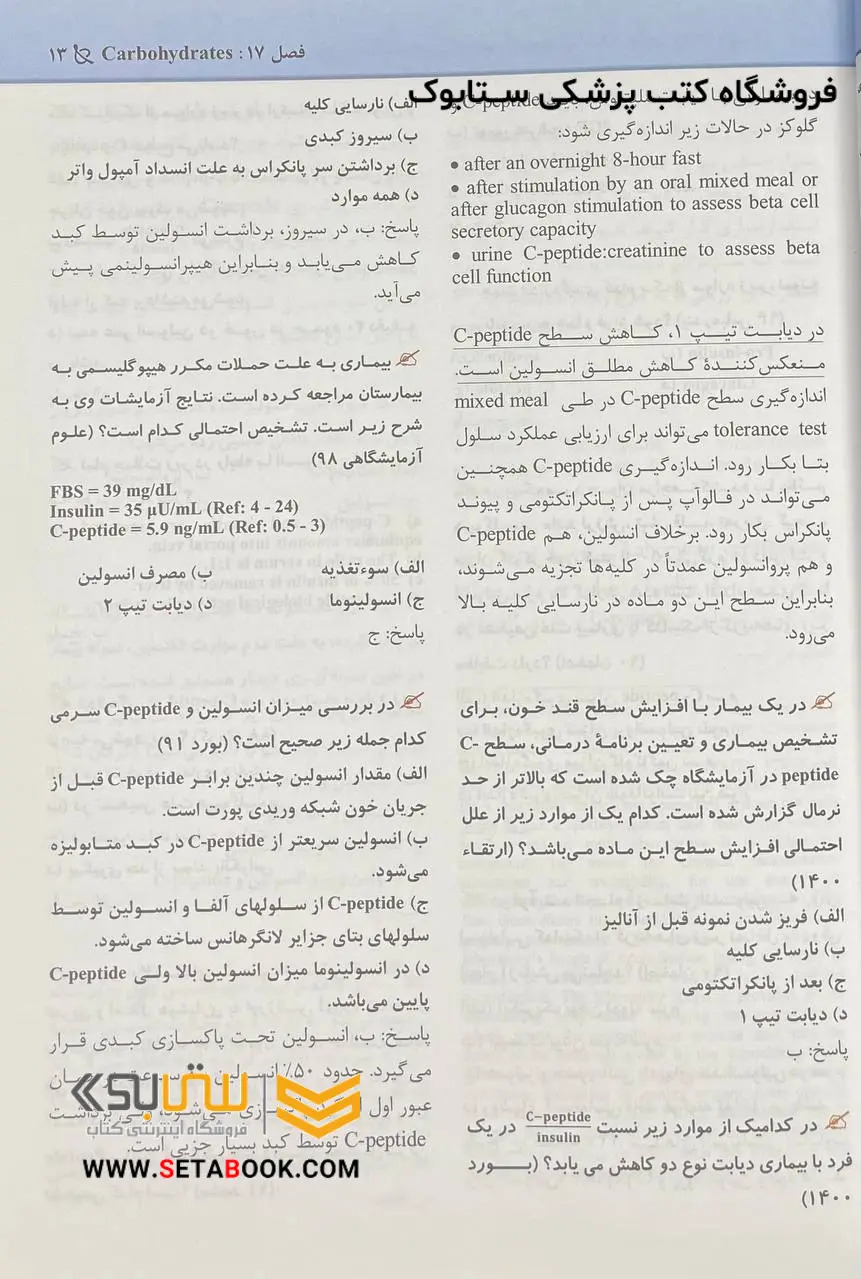 فصل ۱۷: Carbohydrates ۱۳
فروشگاه کتب پزشکی ستابوک
گلوکز در حالات زیر اندازه‌گیری شود:
• after an overnight 8-hour fast
• after stimulation by an oral mixed meal or
after glucagon stimulation to assess beta cell
secretory capacity
• urine C-peptide:creatinine to assess beta
cell function
در دیابت تیپ ۱، کاهش سطح C-peptide
منعکس‌کنندهٔ کاهش مطلق انسولین است.
اندازه‌گیری سطح C-peptide در طی mixed meal
tolerance test می‌تواند برای ارزیابی عملکرد سلول
بتا بکار رود. اندازه‌گیری C-peptide همچنین
می‌تواند در فالوآپ پس از پانکراتکتومی و پیوند
پانکراس بکار رود. برخلاف انسولین، هم C-peptide
و هم پروانسولین عمدتاً در کلیه‌ها تجزیه می‌شوند،
بنابراین سطح این دو ماده در نارسایی کلیه بالا
می‌رود.
در یک بیمار با افزایش سطح قند خون، برای
تشخیص بیماری و تعیین برنامهٔ درمانی، سطح C-
peptide در آزمایشگاه چک شده است که بالاتر از حد
نرمال گزارش شده است. کدام یک از موارد زیر از علل
احتمالی افزایش سطح این ماده می‌باشد؟ (ارتقاء
۱۴۰۰)
الف) فریز شدن نمونه قبل از آنالیز
ب) نارسایی کلیه
ج) بعد از پانکراتکتومی
د) دیابت تیپ ۱
پاسخ: ب
در کدامیک از موارد زیر نسبت C-peptide/insulin در یک
فرد با بیماری دیابت نوع دو کاهش می یابد؟ (بورد
۱۴۰۰)
الف) نارسایی کلیه
ب) سیروز کبدی
ج) برداشتن سر پانکراس به علت انسداد آمپول واتر
د) همه موارد
پاسخ: ب، در سیروز، برداشت انسولین توسط کبد
کاهش می‌یابد و بنابراین هیپرانسولینمی پیش
می‌آید.
بیماری به علت حملات مکرر هیپوگلیسمی به
بیمارستان مراجعه کرده است. نتایج آزمایشات وی به
شرح زیر است. تشخیص احتمالی کدام است؟ (علوم
آزمایشگاهی ۹۸)
FBS = 39 mg/dL
Insulin = 35 µU/mL (Ref: 4 - 24)
C-peptide = 5.9 ng/mL (Ref: 0.5 - 3)
الف) سوءتغذیه ب) مصرف انسولین
ج) انسولینوما د) دیابت تیپ ۲
پاسخ: ج
در بررسی میزان انسولین و C-peptide سرمی
کدام جمله زیر صحیح است؟ (بورد ۹۱)
الف) مقدار انسولین چندین برابر C-peptide قبل از
جریان خون شبکه وریدی پورت است.
ب) انسولین سریعتر از C-peptide در کبد متابولیزه
می‌شود.
ج) C-peptide از سلولهای آلفا و انسولین توسط
سلولهای بتای جزایر لانگرهانس ساخته می‌شود.
د) در انسولینوما میزان انسولین بالا ولی C-peptide
پایین می‌باشد.
پاسخ: ب، انسولین تحت پاکسازی کبدی قرار
می‌گیرد. حدود ۵۰٪ انسولین
عبور اول برداشت
C-peptide توسط کبد بسیار جزیی است.
ستابوک
فروشگاه اینترنتی کتاب
WWW.SETABOOK.COM